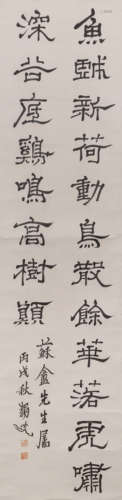 魚戲新荷動鳥散餘華落虎嘯
深谷底鷄鳴高樹顛
蘇盦先生屬
丙戌秋